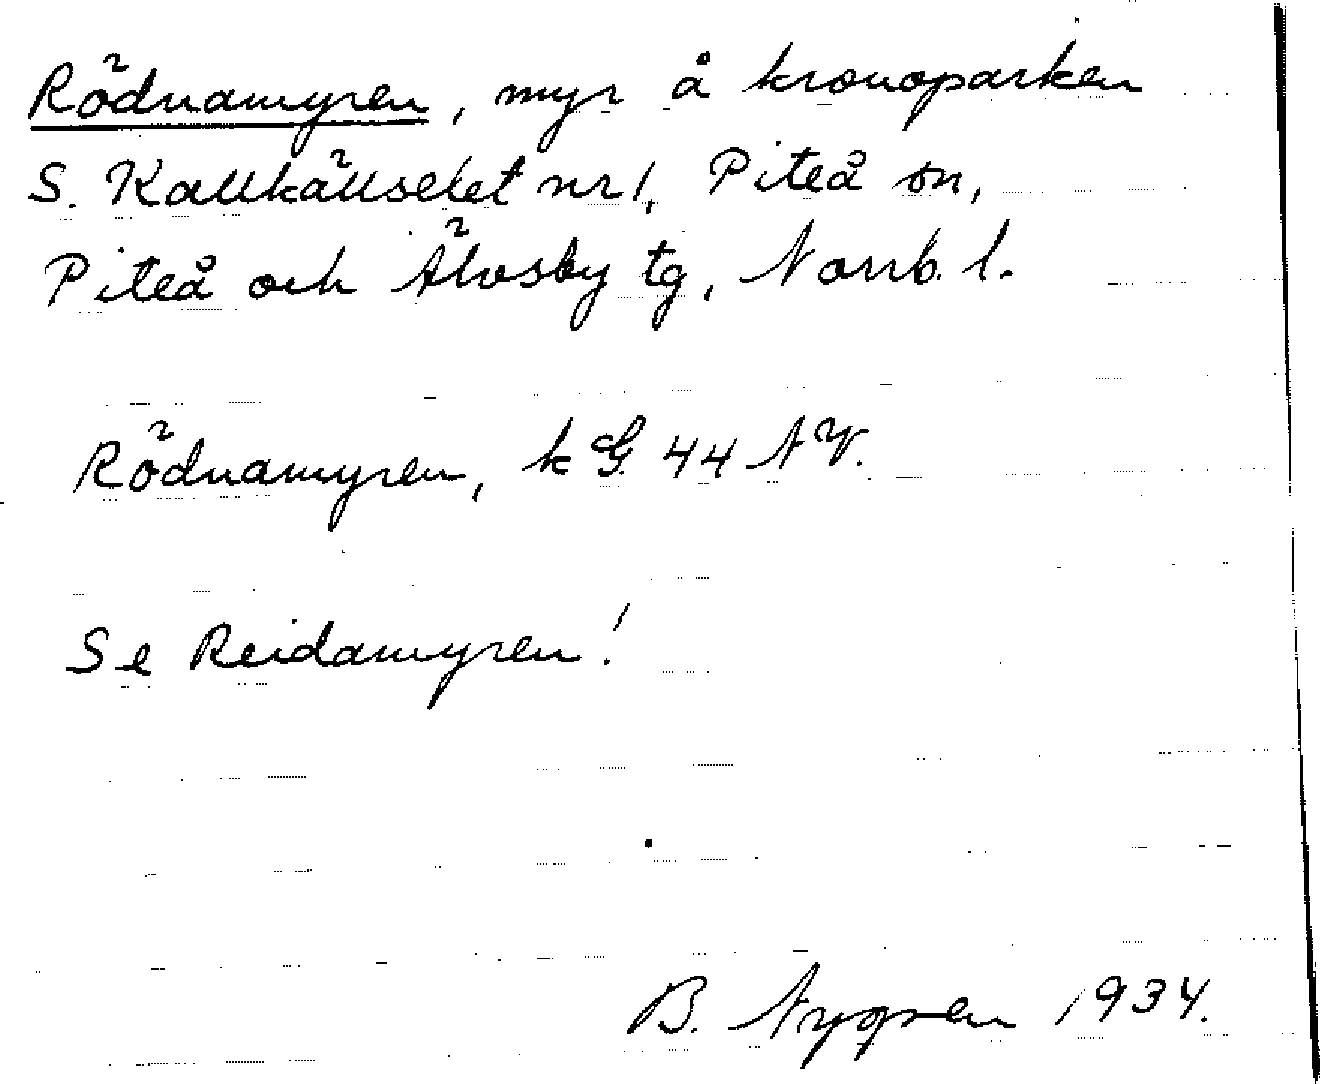 Rödnamyren, myr å kronoparken
S. Kallkällselet nr 1, Piteå sn,
Piteå och Älvsby tg, Norrb. l.
Rödnamyren, k G. 44 NV.
Se Reidamyren!
B. Nygren 1934.